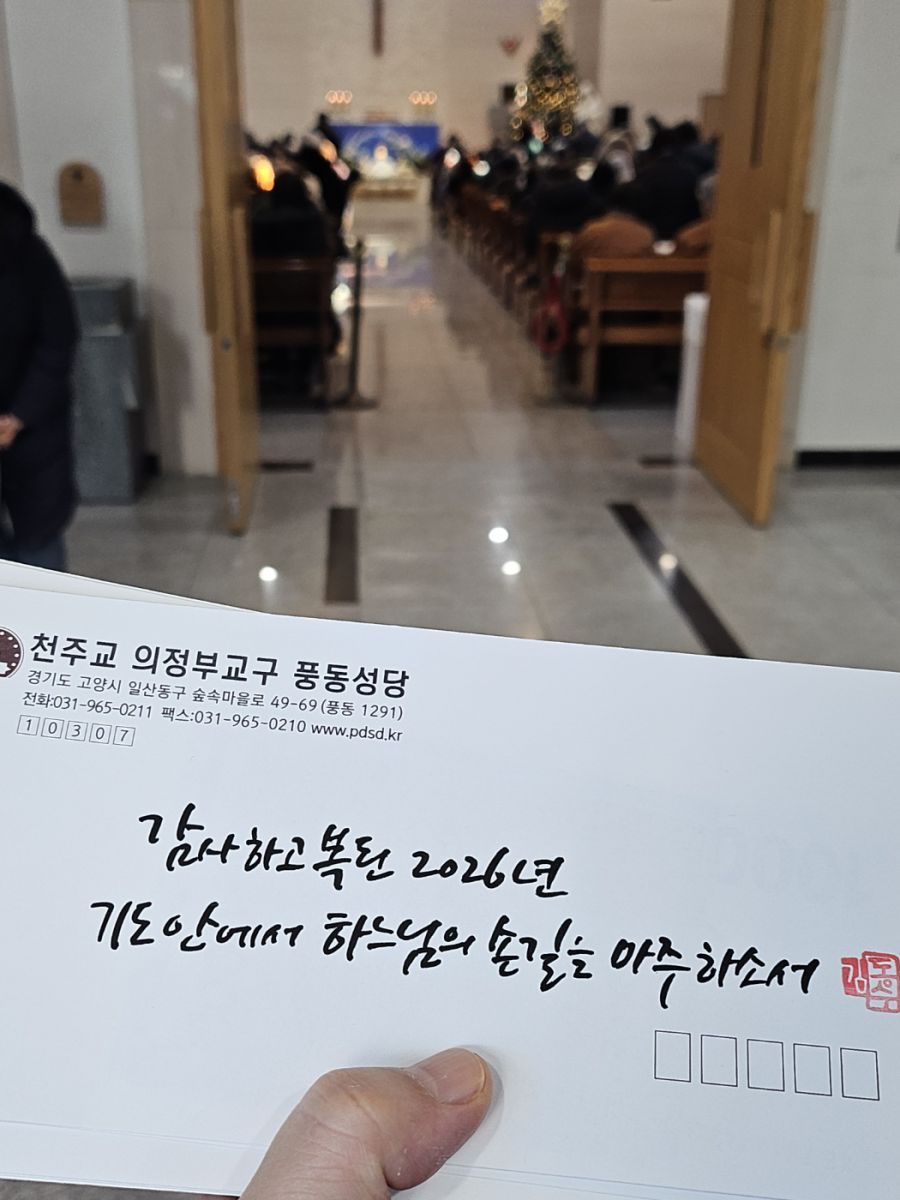 천주교 의정부교구 풍동성당
경기도 고양시 일산동구 숲속마을로 49-69 (풍동 1291)
전화:031-965-0211 팩스:031-965-0210 www.pdsd.kr
10307
감사하고 복된 2026년
기도 안에서 하느님의 손길을 마주하소서